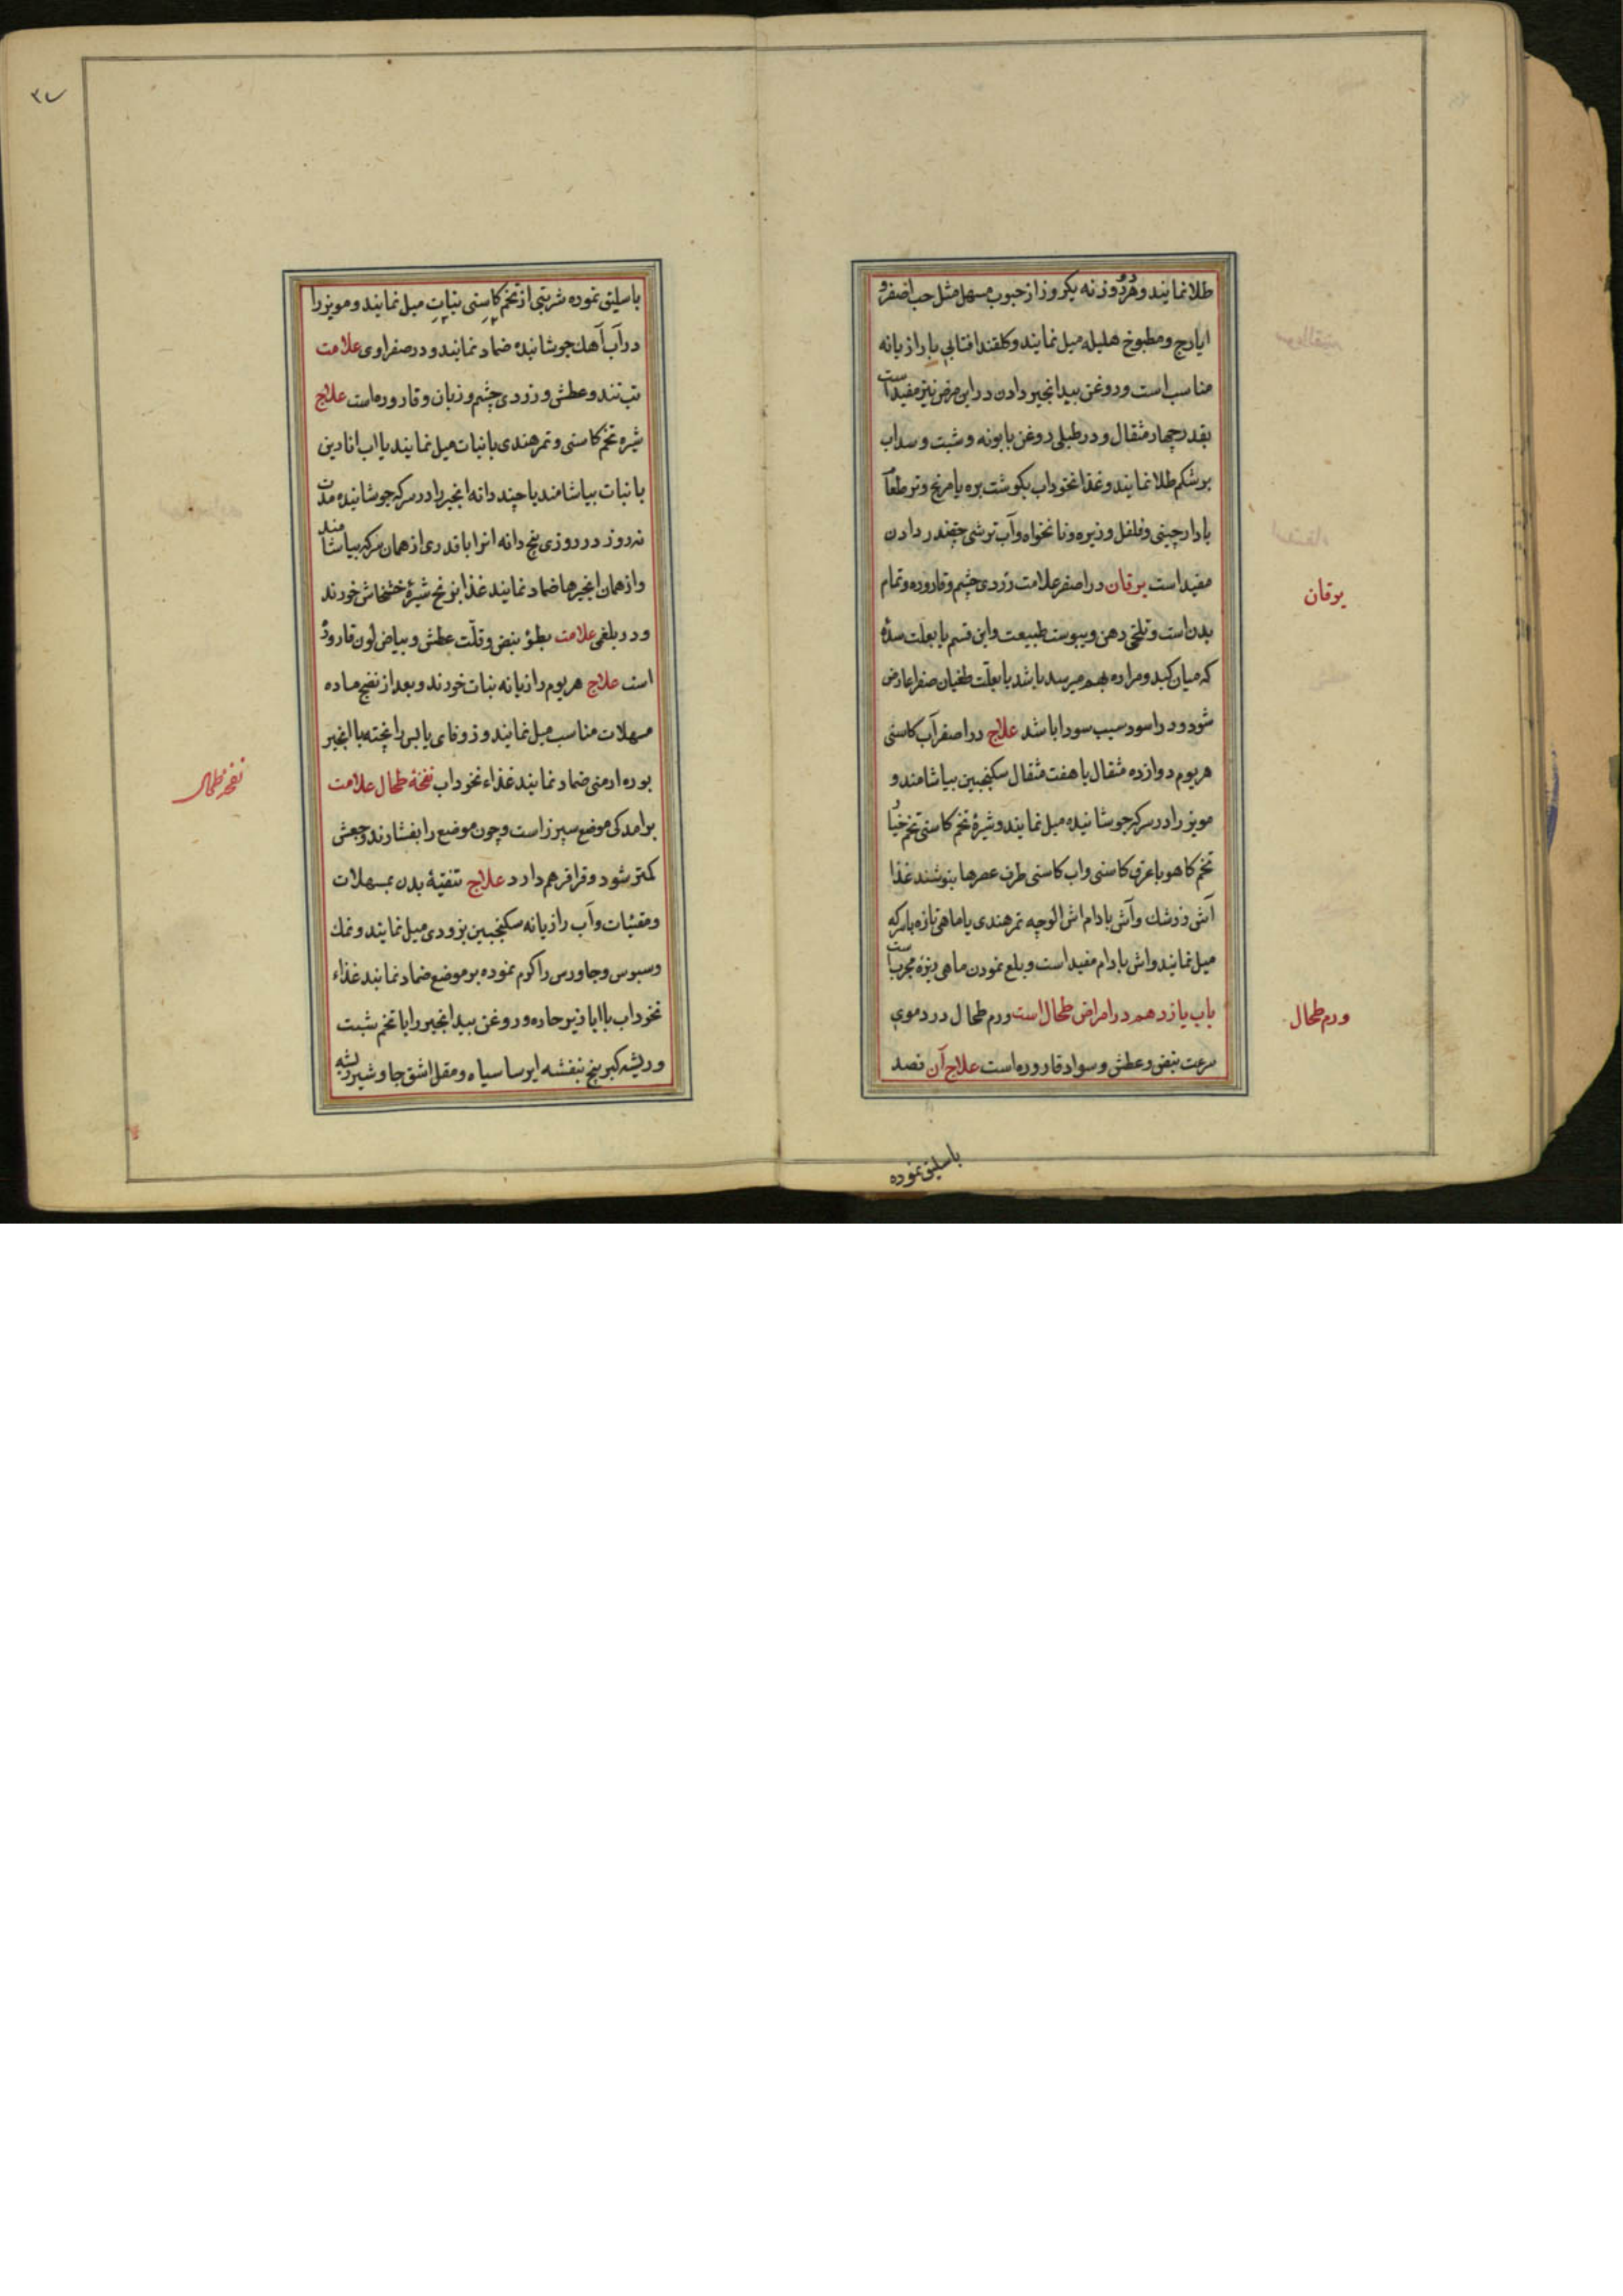 طلا نمایند و هر دو روز نه یکروز از حبوب مسهل مثل حب اصفر و
ایارج و مطبوخ هلیله میل نمایند و گلقند افتابی با رازیانه
مناسب است و روغن بیدانجیر دادن در این مرض نیز مفید است
بقدر چهار مثقال و در طبلی روغن بابونه و شبت و سداب
بر شکم طلا نمایند و غذا نخوداب بکوشت بره یا مرغ و
با دارچینی و فلفل و زیره و نانخواه و آب ترشی چغندر دادن
مفید است یرقان در اصفر علامت زردی چشم و قاروره و تمام
بدن است و تلخی دهن و یبوست طبیعت و این قسم یا بعلت سده
که میان کبد و مراره بهم میرسد باشد یا بعلّت طغیان صفرا عارض
شود و در اسود سبب سودا باشد علاج در اصفر آب کاسنی
هر یوم دوازده مثقال با هفت مثقال سکنجبین بیاشامند و
مویز را در سرکه جوشانیده میل نمایند و شیرهٔ تخم کاسنی تخم خیا
تخم کاهو با عرق کاسنی و اب کاسنی طرف عصرها بنوشند غذا
آش زرشك و آش بادام اش الوچه تمرهندی یا ماهی تازه با سرکه
میل نمایند و اش بادام مفید است و بلع نمودن ماهی ریزه مجرب است
باب یازدهم در امراض طحال است ورم طحال در دموی
سرعت نبض و عطش و سواد قاروره است علاج آن فصد
یرقان
ورم طحال
باسلیق نموده
۳۷
باسلیق نموده شربتی از تخم کاسنی بنبات میل نمایند و مویز را
در آب آهك جوشانیده ضماد نمایند و در صفراوی علامت
تب تند و عطش و زردی چشم و زبان و قاروره است علاج
شیره تخم کاسنی و تمرهندی با نبات میل نمایند یا اب انارین
با نبات بیاشامند یا چند دانه انجیر را در سرکه جوشانیده مدت
نه روز در روزی پنج دانه انرا با قدری از همان سرکه بیاشامند
و از همان انجیرها ضماد نمایند غذا برنج شیرهٔ خشخاش خورند
و در بلغمی علامت بطؤ نبض و قلّت عطش و بیاض لون قاروره
است علاج هر یوم رازیانه بنبات خورند و بعد از نضج ماده
مسهلات مناسب میل نمایند و زوفای یابس را پخته با انجیر
بوره ارمنی ضماد نمایند غذاء نخوداب نفخهٔ طحال علامت
برامدکی موضع سپرز است و چون موضع را بفشارند وجعش
کمتر شود و قراقر هم دارد علاج تنقیهٔ بدن بمسهلات
و مقیئات و آب رازیانه سکنجبین بزوری میل نمایند و نمك
و سبوس و جاورس را کرم نموده بر موضع ضماد نمایند غذاء
نخوداب با ابازیر حاره و روغن بیدانجیر را با تخم شبت
و ریشه کبر بیخ بنفشه ایرسا سیاه و مقل اشق جاوشیر ریشه
نفخه طحال